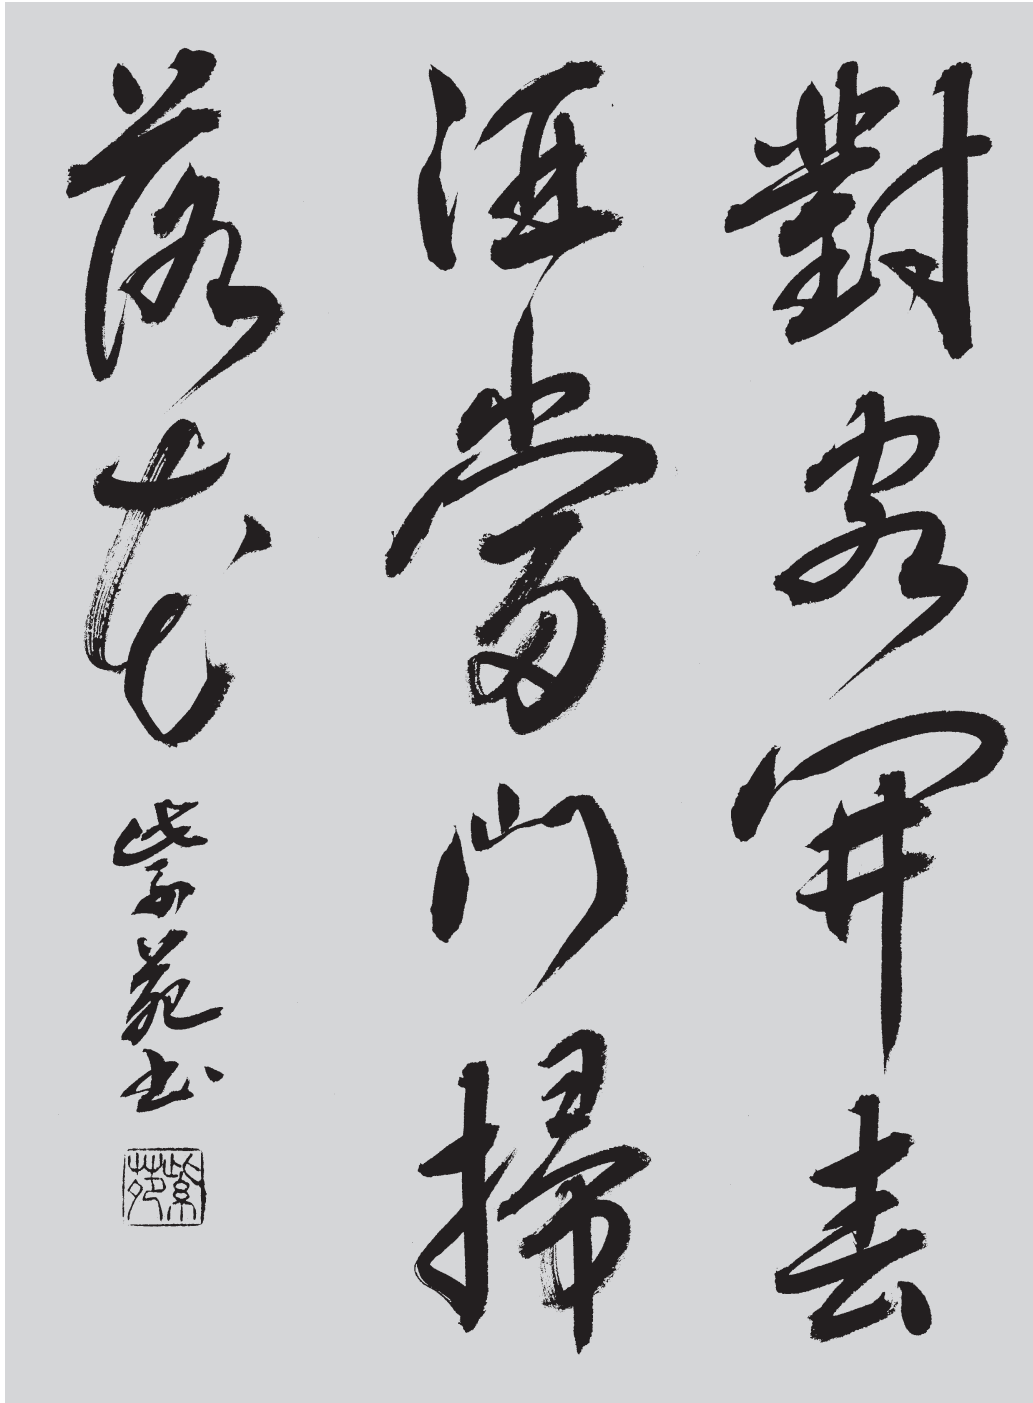 對客開春
酒當門掃
落花
紫苑书
紫苑